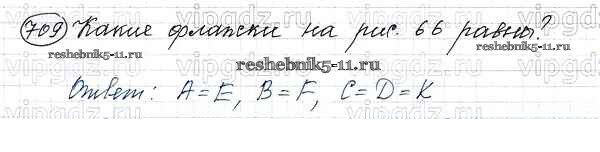 709 Какие флажки на рис. 66 равны?
reshebnik5-11.ru
reshebnik5-11.ru
Ответ: A=E, B=F, C=D=K